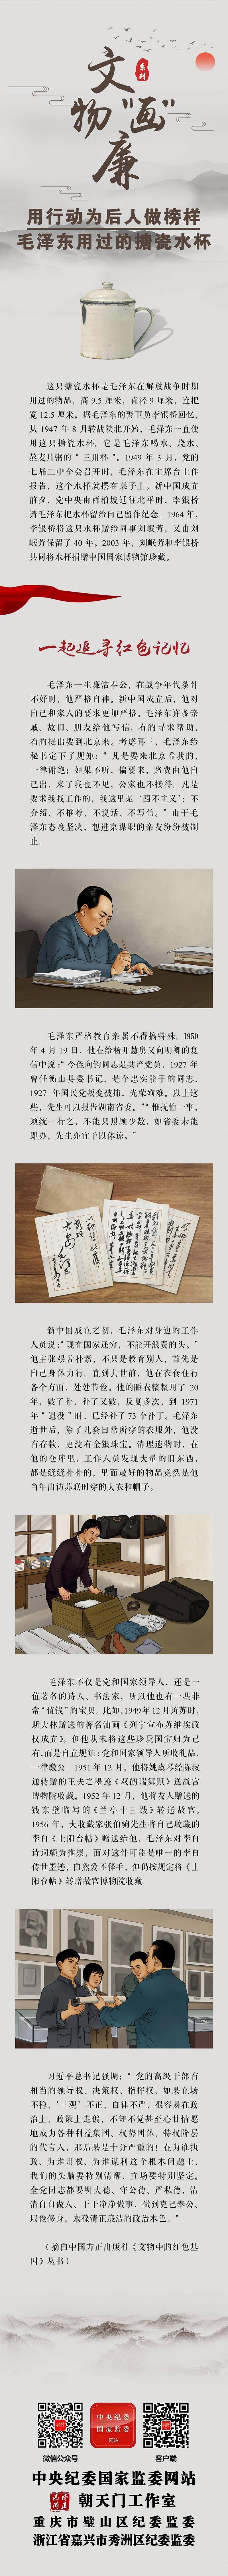 文物"画"廉
系列
用行动为后人做榜样
毛泽东用过的搪瓷水杯
这只搪瓷水杯是毛泽东在解放战争时期
用过的物品，高 9.5 厘米，直径 9 厘米，连把
宽 12.5 厘米。据毛泽东的警卫员李银桥回忆，
从 1947 年 8 月转战陕北开始，毛泽东一直使
用这只搪瓷水杯。它是毛泽东喝水、烧水、
熬麦片粥的“三用杯”。1949 年 3 月，党的
七届二中全会召开时，毛泽东在主席台上作
报告，这个水杯就摆在桌子上。新中国成立
前夕，党中央由西柏坡迁往北平时，李银桥
请毛泽东把水杯留给自己留作纪念。1964 年，
李银桥将这只水杯赠给同事刘岷芳，又由刘
岷芳保留了 40 年。2003 年，刘岷芳和李银桥
共同将水杯捐赠中国国家博物馆珍藏。
一起追寻红色记忆
毛泽东一生廉洁奉公，在战争年代条件
不好时，他严格自律。新中国成立后，他对
自己和家人的要求更加严格。毛泽东许多亲
戚、故旧、朋友给他写信，有的寻求帮助，
有的提出要到北京来。考虑再三，毛泽东给
秘书定下了规矩：“凡是要来北京看我的，
一律谢绝；如果不听，偏要来，路费由他自
己出，来了我也不见，公家也不接待。凡是
要求我找工作的，我这里是‘四不主义’：不
介绍、不推荐、不说话、不写信。”由于毛
泽东态度坚决，想进京谋职的亲友纷纷被制
止。
毛泽东严格教育亲属不得搞特殊。1950
年 4 月 19 日，他在给杨开慧舅父向明卿的复
信中说：“令侄向钧同志是共产党员，1927 年
曾任衡山县委书记，是个忠实能干的同志，
1927 年国民党叛变被捕，光荣殉难。以上这
些，先生可以报告湖南省委。”“惟抚恤一事，
须统一行之，不能只照顾少数，如省委未能
即办，先生亦宜予以体谅。”
新中国成立之初，毛泽东对身边的工作
人员说：“现在国家还穷，不能开浪费的头。”
他主张艰苦朴素，不只是教育别人，首先是
自己身体力行。直到去世前，他在衣食住行
各个方面，处处节俭。他的睡衣整整用了 20
年，破了补，补了又破，反复多次，到 1971
年“退役”时，已经补了 73 个补丁。毛泽东
逝世后，除了几套日常所穿的衣服外，他没
有存款，更没有金银珠宝。清理遗物时，在
他的仓库里，工作人员发现大量的旧东西，
都是缝缝补补的，里面最好的物品竟然是他
当年出访苏联时穿的大衣和帽子。
毛泽东不仅是党和国家领导人，还是一
位著名的诗人、书法家，所以他也有一些非
常“值钱”的宝贝。比如，1949 年 12 月访苏时，
斯大林赠送的著名油画《列宁宣布苏维埃政
权成立》。但他从未将这些珍玩国宝归为己
有，而是自立规矩：党和国家领导人所收礼品，
一律缴公。1951 年 12 月，他将姚虞琴经陈叔
通转赠的王夫之墨迹《双鹤瑞舞赋》送故宫
博物院收藏。1952 年 12 月，他将友人赠送的
钱东壁临写的《兰亭十三跋》转送故宫。
1956 年，大收藏家张伯驹先生将自己收藏的
李白《上阳台帖》赠送给他，毛泽东对李白
诗词颇为推崇，而对这件可能是唯一的李白
传世墨迹，自然爱不释手，但仍按规定将《上
阳台帖》转赠故宫博物院收藏。
习近平总书记强调：“党的高级干部有
相当的领导权、决策权、指挥权，如果立场
不稳、‘三观’不正、自律不严，很容易在政
治上、政策上走偏，不知不觉甚至心甘情愿
地成为各种利益集团、权势团体、特权阶层
的代言人，那后果是十分严重的！在为谁执
政、为谁用权、为谁谋利这个根本问题上，
我们的头脑要特别清醒、立场要特别坚定。
全党同志都要明大德、守公德、严私德，清
清白白做人、干干净净做事，做到克己奉公、
以俭修身，永葆清正廉洁的政治本色。”
（摘自中国方正出版社《文物中的红色基
因》丛书）
中央纪委
国家监委
网站
微信公众号
客户端
中央纪委国家监委网站
朝天门工作室
重庆市璧山区纪委监委
浙江省嘉兴市秀洲区纪委监委